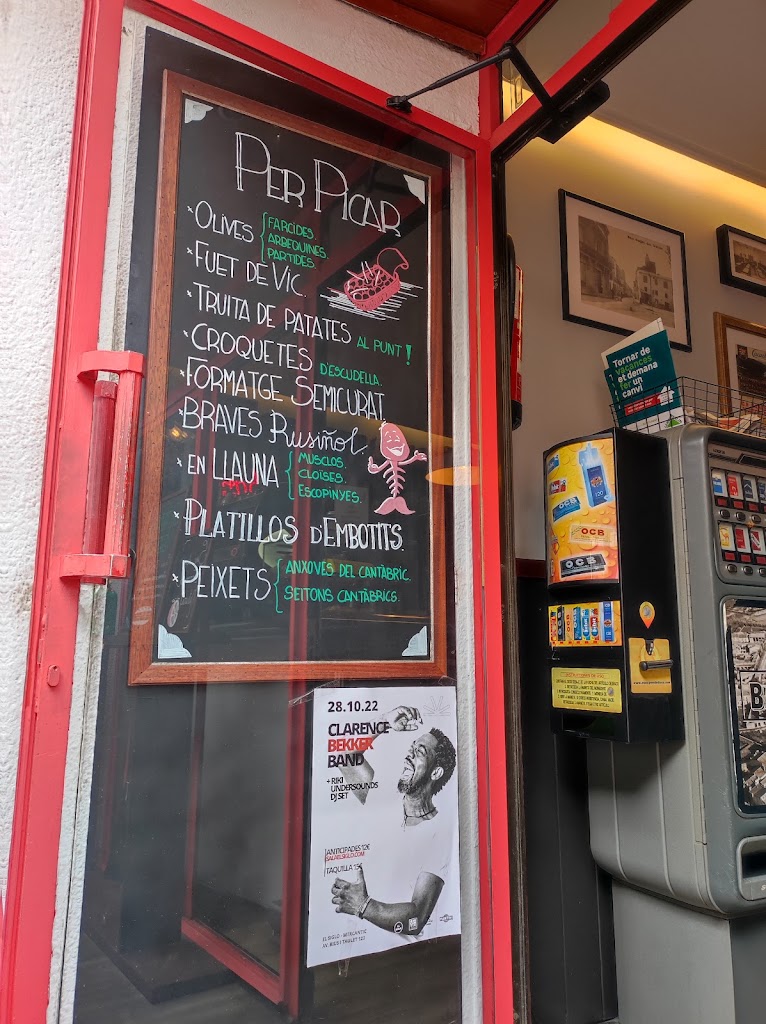 PER PICAR
* OLIVES { FARCIDES.
ARBEQUINES.
PARTIDES.
* FUET DE VIC.
* TRUITA DE PATATES AL PUNT!
* CROQUETES D'ESCUDELLA.
* FORMATGE SEMICURAT.
* BRAVES Rusiñol.
* EN LLAUNA { MUSCLOS.
CLOÏSES.
ESCOPINYES.
* PLATILLOS D'EMBOTITS.
* PEIXETS { ANXOVES DEL CANTÀBRIC.
SEITONS CANTÀBRICS.
28.10.22
CLARENCE
BEKKER
BAND
+ RIKI
UNDERSOUNDS
DJ SET
ANTICIPADES 12€
SALAELSIGLO.COM
TAQUILLA 15€
EL SIGLO - MERCANTIC
AV. RIUS I TAULET 120
Tornar de
vacances
et demana
fer un
canvi
OCB
OCB
OCB
B